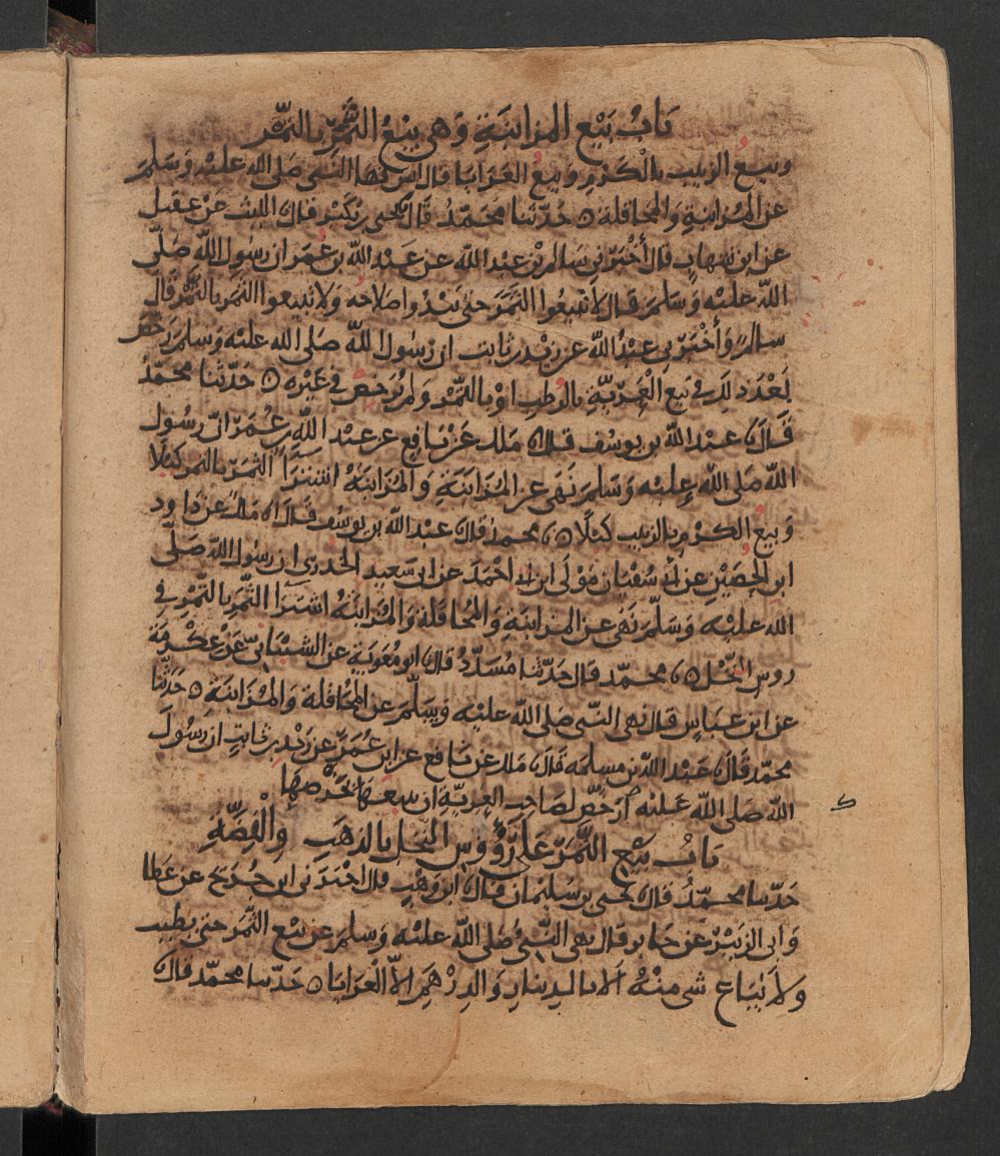 بَابُ بَيْعِ المزابنَةِ وَهي بَيْعُ الثَّمَرِ بالتمْر
وبيعُ الزبيب بالْكَرْمِ وَبيعُ العَرَايَا قال انس نهَا النَّبى صَلى الله عليْه وَسَلمَ
عن المُزابنةِ وَالمحاقلة ○ حَدّثنا محَمّدُ قال يحيى بن بُكَيْر قال الليث عَنْ عقيل
عن ابن شهابٍ قال أخْبَرَنى سَالم بْن عبد اللّه عن عَبْد اللّه بن عُمَر ان رسُول اللّه صَلّى
اللّه عليْه وَسَلمَ قال لا تَبيعُوا الثَّمَرَ حتى يَبْدُوا صَلاحه وَلا تبيعوا الثمَر بالتَّمْر قال
سالمٌ وَأخْبَرَني عبْدُ اللَّه عن زيْد بن ثابت ان رسُول للَّه صَلى الله عليْه وَسلم رَخص
بَعْدَ ذلِكَ في بَيع الْعَرِيّةِ بالرُطبِ اوْ بالتَّمْر وَلم يُرَخص في غَيْره ○ حَدّثنا محمّدُ
قَالَ عبْد اللّه بن يوسُف قال ملك عَنْ نافع عن عبْد اللّهِ بن عُمَرَ انّ رسُول
اللّه صَلى اللّه عليْه وَسَلمَ نَهَى عن المُزَابَنَةِ وَالمُزَابنَةُ اشْتِرَآءُ الثَّمَرِ بالتمر كيْلا
وَبيعُ الكرْمِ بالزبيب كيْلًا ○ محمدُ قال عبْد اللّه بن يوسُف قال ا ملكٌ عن دَاود
ابن الحصَيْنِ عن أبى سُفْيَان مَوْلَى ابن ابى احْمَدَ عن ابى سَعيد الخدْرىّ ان رسُول اللّه صَلّى
الله عليْه وَسَلّم نَهَى عن المزابنَةِ وَالمُحَاقلة وَالمُزَابنَةُ اشتِرَآءُ الثَّمرِ بالتَّمْرِ في
روس النَّخْل ○ محمّد قال حَدّثنا مُسَدّدُ قال ابو مُعَوية عن الشيْبَانيّ عَنْ عِكْرمَةَ
عن ابن عبَاسٍ قال نهى النّبى صَلى اللّه عليْه وسَلّمَ عن المحَاقلة وَالمُزَابنَة ○ حَدثنا
محمّد قَالَ عَبْد اللّه بن مسلمة قَالَ ملك عن نَافع عن ابن عُمَر عن زيْد بن ثابتٍ ان رَسُولَ
اللّه صَلى اللّه عَليْه أرْخَصَ لصَاحب العريّةِ ان يبيعَهَا بخَرْصِهَا
بَابُ بَيْعِ الثَّمَر عَلى رُؤُوسِ النخل بالذهَبِ وَالْفِضَّةِ
حَدّثنا محمّدُ قال يحيى بن سُليمَان قال ابن وَهْبٍ قال اخْبَرَنى ابن جُرَيْج عن عَطا
وَابى الزبَيْرِ عن جابر قال نهى النّبىُّ صَلى اللّه عليْه وَسلمَ عن بَيْع الثَّمَر حتى يطيبَ
وَلا يُبَاع شى منْهُ الا بالدينَارِ وَالدِرْهَمِ الاّ الْعَرَايَا ○ حَدّثنا محمّد قال